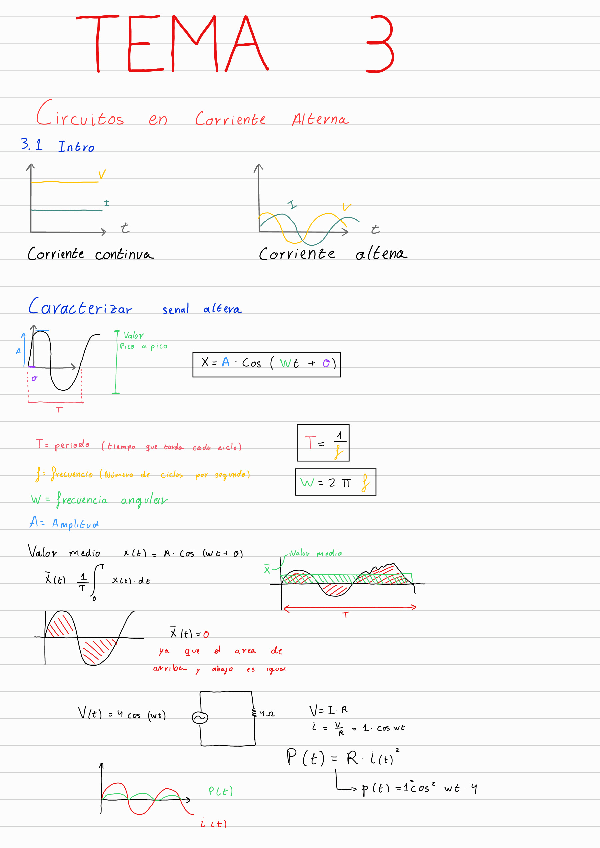 TEMA 3
Circuitos en Corriente Alterna
3.1 Intro
V
I
t
I
V
t
Corriente continua
Corriente altena
Caracterizar senal altera
A
Θ
T
Valor
Pico a pico
X = A · Cos ( Wt + Θ)
T = periodo (tiempo que tarda cada ciclo)
T = 1/f
f = frecuencia (Número de ciclos por segundo)
W = 2 π f
W = frecuencia angular
A = Amplitud
Valor medio x(t) = A · Cos (wt + Θ)
X̄(t) 1/T ∫₀ᵀ x(t) · dt
X̄
Valor medio
T
X̄(t) = 0
ya que el area de
arriba y abajo es igual
V(t) = 4 cos (wt)
4Ω
V = I · R
i = V/R = 1 · cos wt
P(t) = R · i(t)²
p(t) = 1² cos² wt 4
P(t)
i(t)